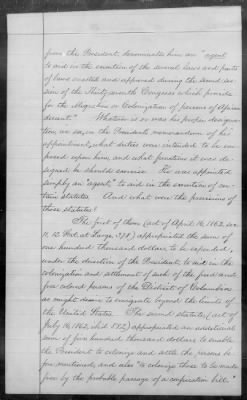 from the President denominates him an "agent
to aid in the execution of the several laws and parts
of laws enacted and approved during the second ses-
sion of the Thirty seventh Congress which provide
for the Migration or Colonization of persons of African
descent." Whatever is or was his proper designa-
tion, we see, in the President's memorandum of his
appointment, what duties were intended to be im-
posed upon him, and what functions it was de-
signed he should exercise. He was appointed
simply an "agent," to aid in the execution of cer-
tain statutes. And what were the provisions of
those statutes?
The first of them (act of April 16, 1862, sec.
11, 12 Stat. at Large, 378) appropriated the sum of
one hundred thousand dollars to be expended,
under the direction of the President, to aid in the
colonization and settlement of such of the free and
free colored persons of the District of Columbia
as might desire to emigrate beyond the limits of
the United States. The second statute, (act of
July 16, 1862, ibid. 582) appropriated an additional
sum of five hundred thousand dollars to enable
the President to colonize and settle the persons be-
fore mentioned, and also "to colonize those to be made
free by the probable passage of a confiscation bill."